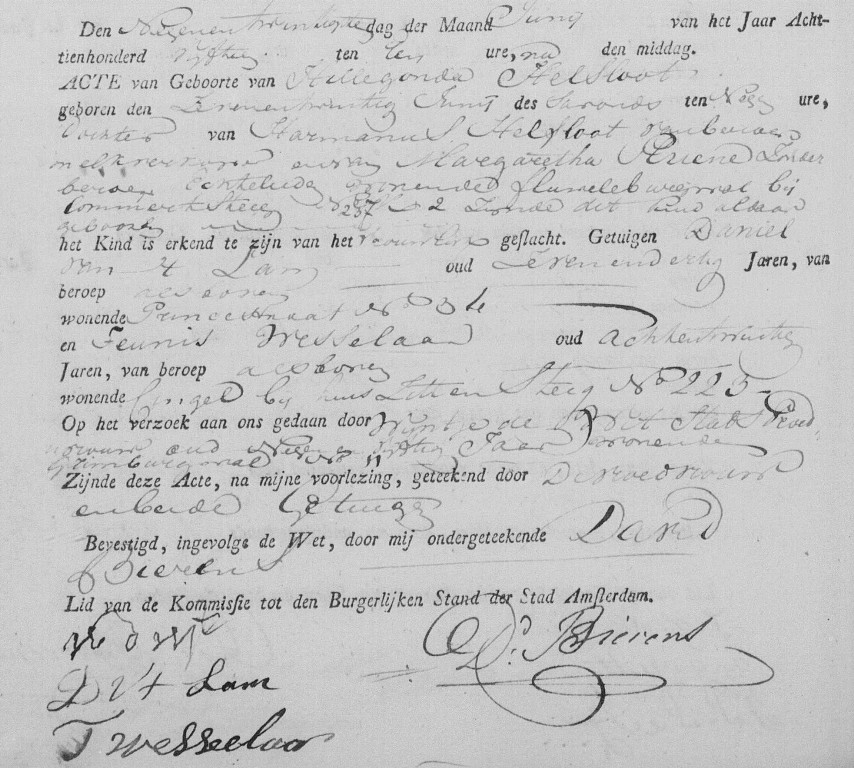 Den Negenentwintigste dag der Maand Junij van het Jaar Acht-
tienhonderd vyftien ten een ure, na den middag.
ACTE van Geboorte van Hillegonda Helsloot
geboren den Zevenentwintig Junij des avonds ten Negen ure,
Dochter van Harmanus Helsloot van beroep
melkverkoper en van Margaretha Zonder
beroep Echtelieden wonende fluweleburgwal bij
Commerch Steeg No 257 2 Zynde dit kind aldaar
geboren
het Kind is erkend te zijn van het vrouwelijk geslacht. Getuigen Daniel
van 't Lam oud Zevenendertig Jaren, van
beroep
wonende Princestraat No 34
en Teunis Wesselaar oud achtentwintig
Jaren, van beroep
wonende Cingel bij huis Zitten Steeg No 225
Op het verzoek aan ons gedaan door Wyntje de Wit Stads Vroed-
vrouw oud Jaar wonende
No 11
Zijnde deze Acte, na mijne voorlezing, geteekend door De vroedvrouw
en beide Getuigen
Bevestigd, ingevolge de Wet, door mij ondergeteekende David
Bierens
Lid van de Kommissie tot den Burgerlijken Stand der Stad Amsterdam.
W d Wit
Ds. Bierens
D v t Lam
T wesselaar